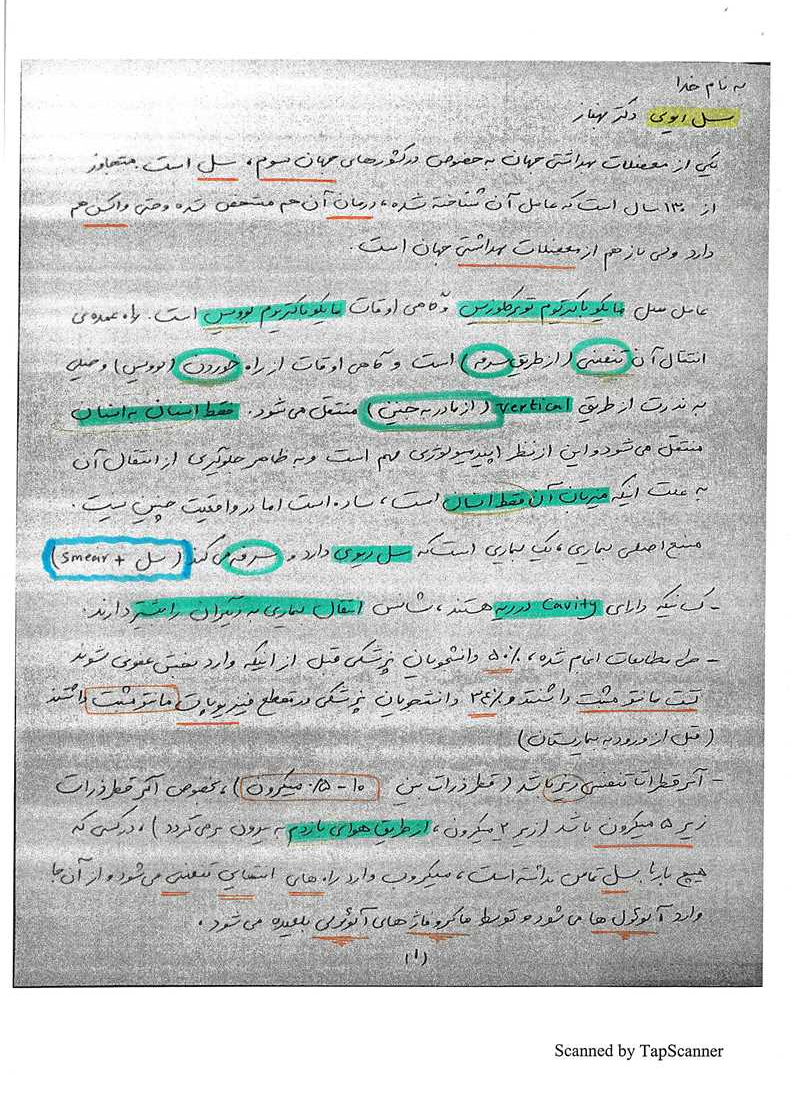 به نام خدا
سل ریوی دکتر بهناز
یکی از معضلات بهداشتی جهان به خصوص در کشورهای جهان سوم، سل است. متجاوز
از ۱۳۰ سال است که عامل آن شناخته شده، درمان آن هم مشخص شده و حتی واکسن هم
دارد ولی باز هم از معضلات بهداشتی جهان است.
عامل سل مایکوباکتریوم توبرکلوزیس و گاهی اوقات مایکوباکتریوم بوویس است. راه عمده‌ی
انتقال آن تنفسی (از طریق سرفه) است و گاهی اوقات از راه خوردن (بوویس) و خیلی
به ندرت از طریق vertical (از مادر به جنین) منتقل می شود. فقط انسان به انسان
منتقل می شود و این از نظر اپیدمیولوژی مهم است و به ظاهر جلوگیری از انتقال آن
به علت اینکه میزبان آن فقط انسان است، ساده است اما در واقعیت چنین نیست.
منبع اصلی بیماری، یک بیماری است که سل ریوی دارد و سرفه می کند (سل + smear)
- کسانیکه دارای cavity در ریه هستند، شانس انتقال بیماری به دیگران را بیشتر دارند.
- طی مطالعات انجام شده، ۵۰٪ دانشجویان پزشکی قبل از اینکه وارد بخش عفونی شوند
تست مانتو مثبت داشتند و ۳۴٪ دانشجویان پزشکی در مقطع فیزیوپات مانتو مثبت داشتند
(قبل از ورود به بیمارستان)
- اگر قطرات تنفسی ریز باشد (قطر ذرات بین ۱۰ - ۰/۵ میکرون)، بخصوص اگر قطر ذرات
زیر ۵ میکرون باشد (زیر ۲ میکرون، از طریق هوای بازدم به بیرون برمی گردد)، در کسی که
هیچ بار با سل تماس نداشته است، میکروب وارد راه های انتهایی تنفسی می شود و از آن جا
وارد آلوئول ها می شود و توسط ماکروفاژ های آلوئولی بلعیده می شود.
(۱)
Scanned by TapScanner